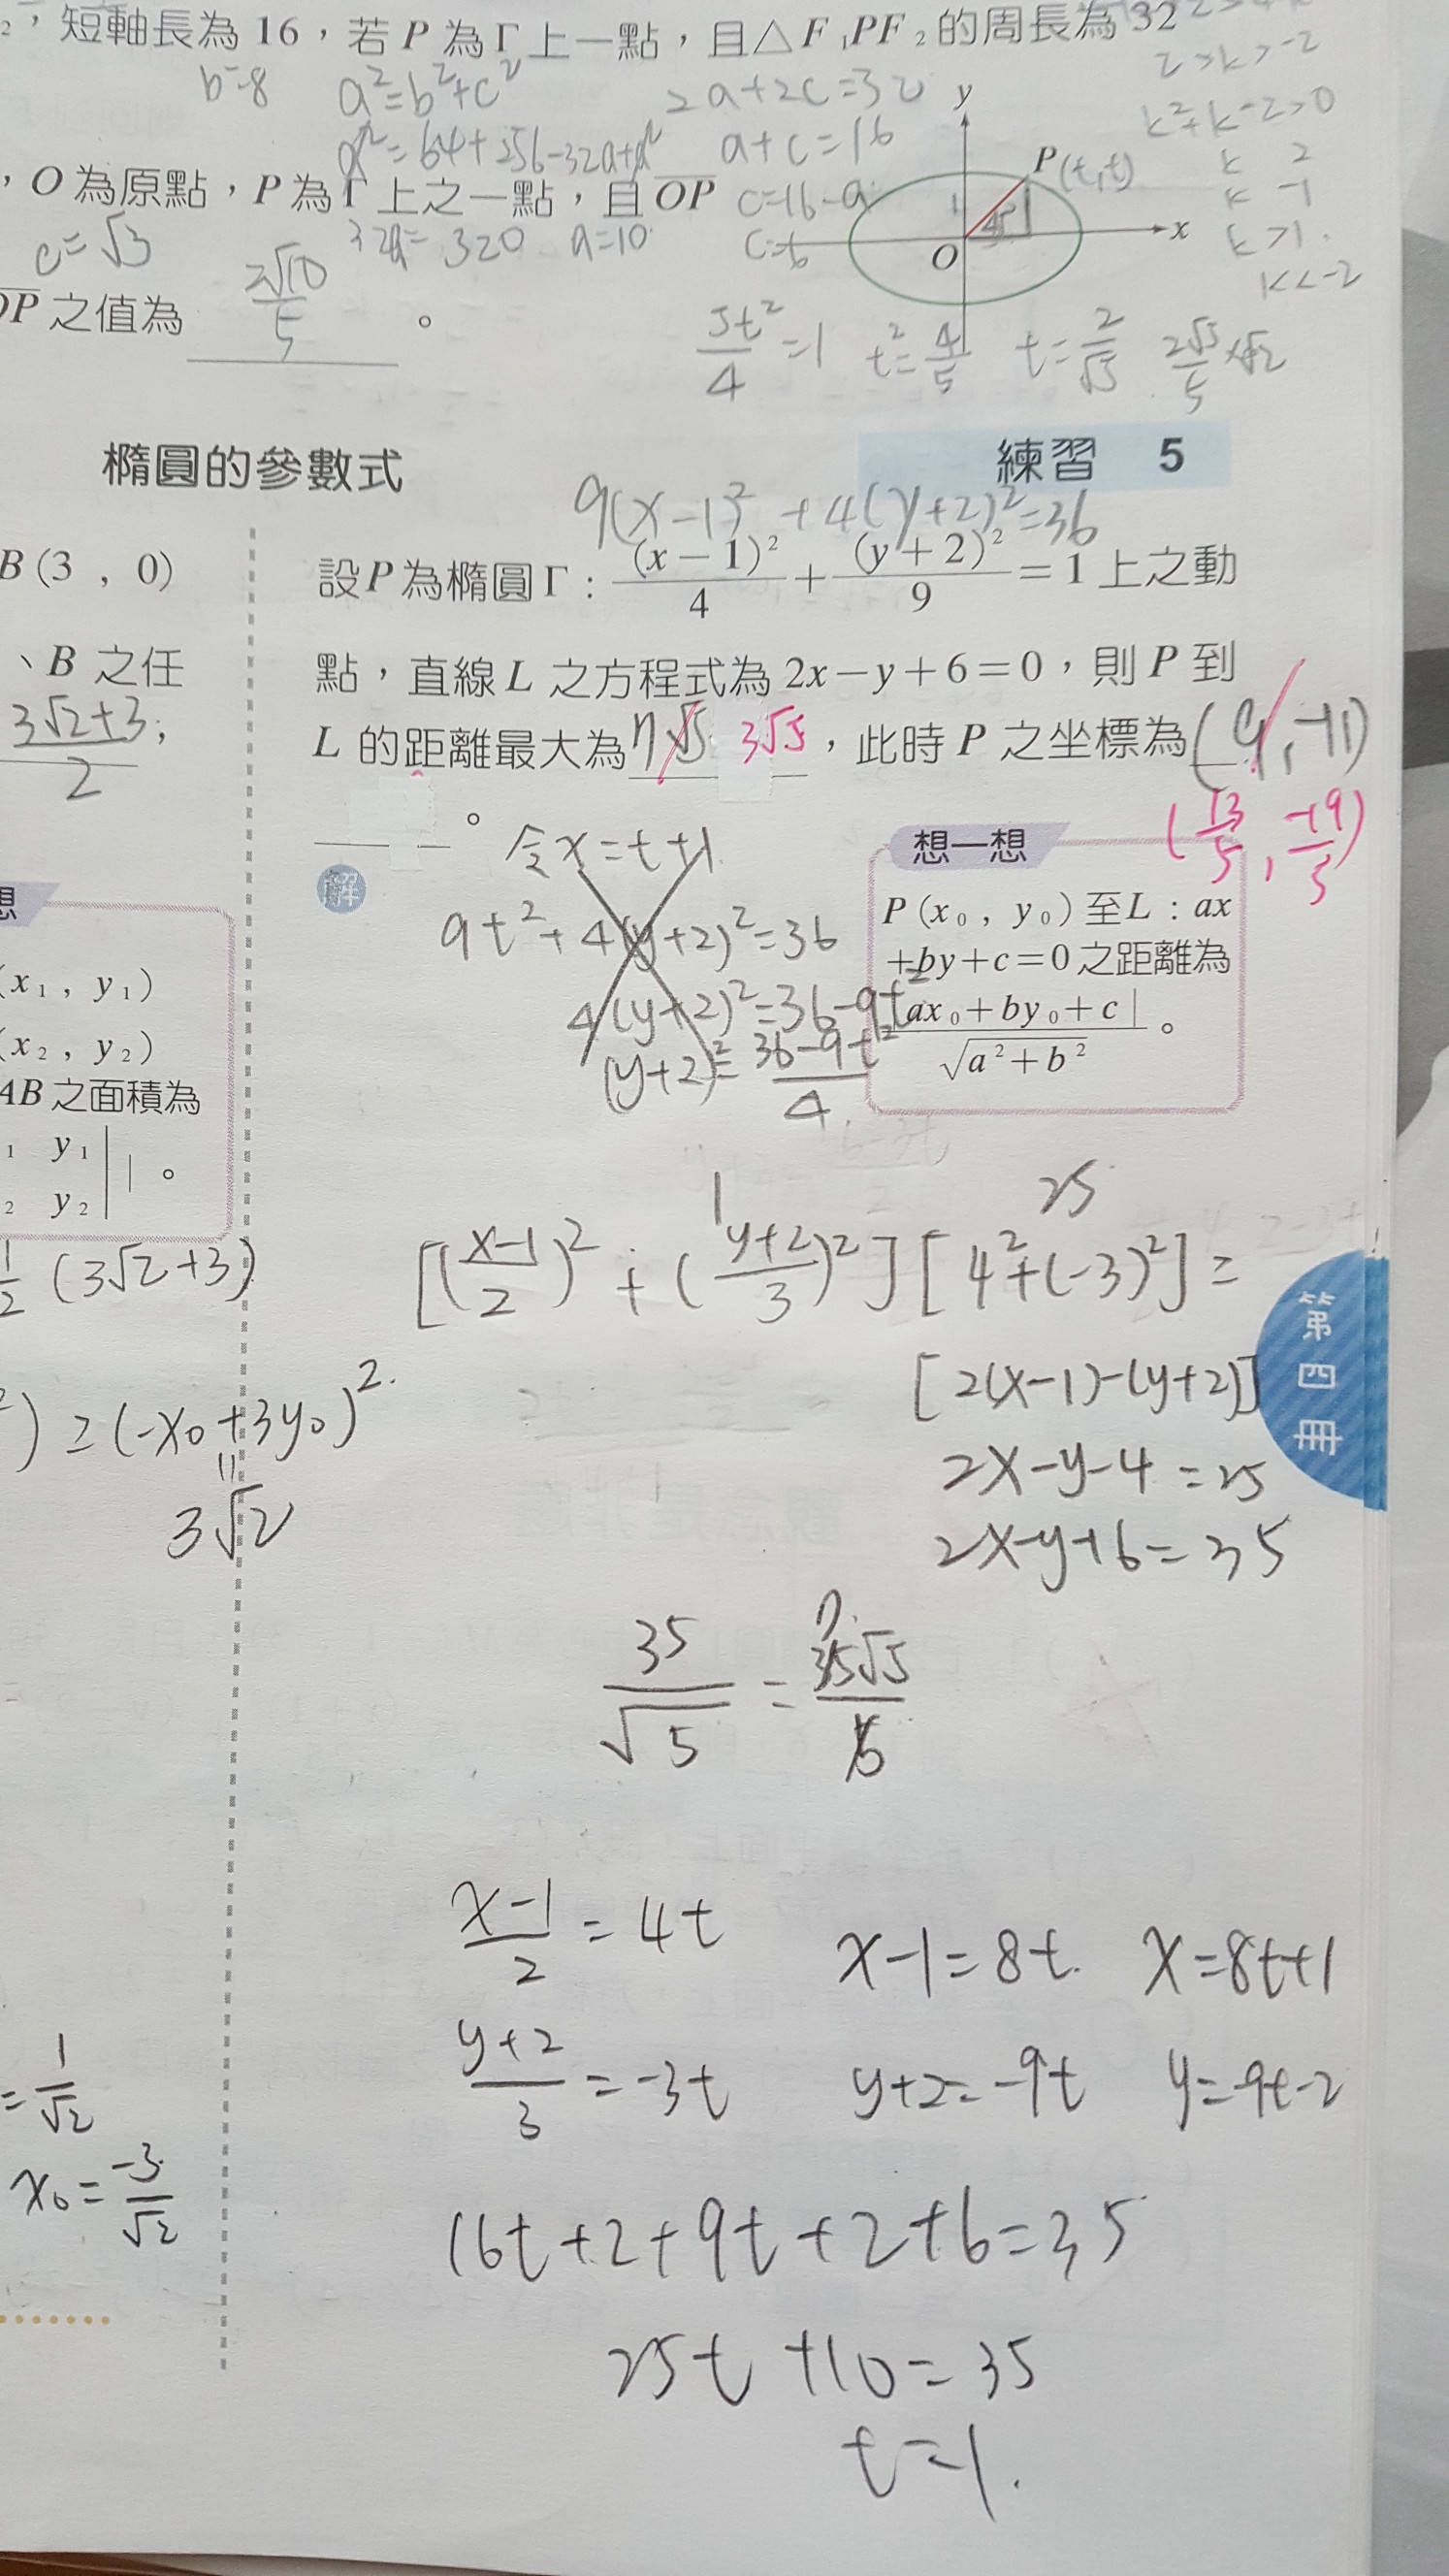 ₂，短軸長為 16，若 P 為 Γ 上一點，且△F₁PF₂ 的周長為 32
b=8
a²=b²+c²
2a+2c=32
2>k>-2
a²=64+256-32a+a²
a+c=16
k²+k-2>0
k 2
k -1
k>1
k<-2
y
P(t,t)
45°
O
x
，O 為原點，P 為 Γ 上之一點，且 OP
c=16-a
c=√3
32a=320 a=10
c=6
OP 之值為 2√10/5 。
5t²/4=1 t²=4/5 t=2/√5 2√5/5×√2
橢圓的參數式
練習 5
9(x-1)²+4(y+2)²=36
B(3 , 0)
設 P 為橢圓 Γ : (x-1)²/4 + (y+2)²/9 = 1 上之動
、B 之任
點，直線 L 之方程式為 2x-y+6=0，則 P 到
3√2+3/2 ;
L 的距離最大為 7√5 3√5 ，此時 P 之坐標為 (9,-11)
(13/5, -19/5)
。
解
令x=t+1
9t²+4(y+2)²=36
4(y+2)²=36-9t²
(y+2)²=36-9t²/4
想一想
P(x₀ , y₀) 至 L : ax
+by+c=0 之距離為
|ax₀+by₀+c|/√a²+b² 。
想
(x₁ , y₁)
(x₂ , y₂)
AB 之面積為
₁ y₁
₂ y₂ | | 。
1/2 (3√2+3)
) ≥(-x₀+3y₀)²
3√2
=1/√2
x₀=-3/√2
1
25
[(x-1/2)²+(y+2/3)²][4²+(-3)²]=
[2(x-1)-(y+2)]
2x-y-4=25
2x-y+6=35
35/√5 = 35√5/5
7
x-1/2=4t x-1=8t x=8t+1
y+2/3=-3t y+2=-9t y=-9t-2
16t+2+9t+2+6=35
25t+10=35
t=1.
第四冊